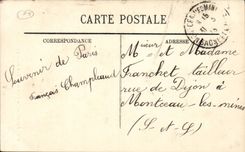 CARTE POSTALE
CORRESPONDANCE
ADRESSE
Souvenir de Paris
François Champleaud
Msieur et Madame
Franchet tailleur
rue de Dijon à
Montceau-les-mines
(S-et-L)